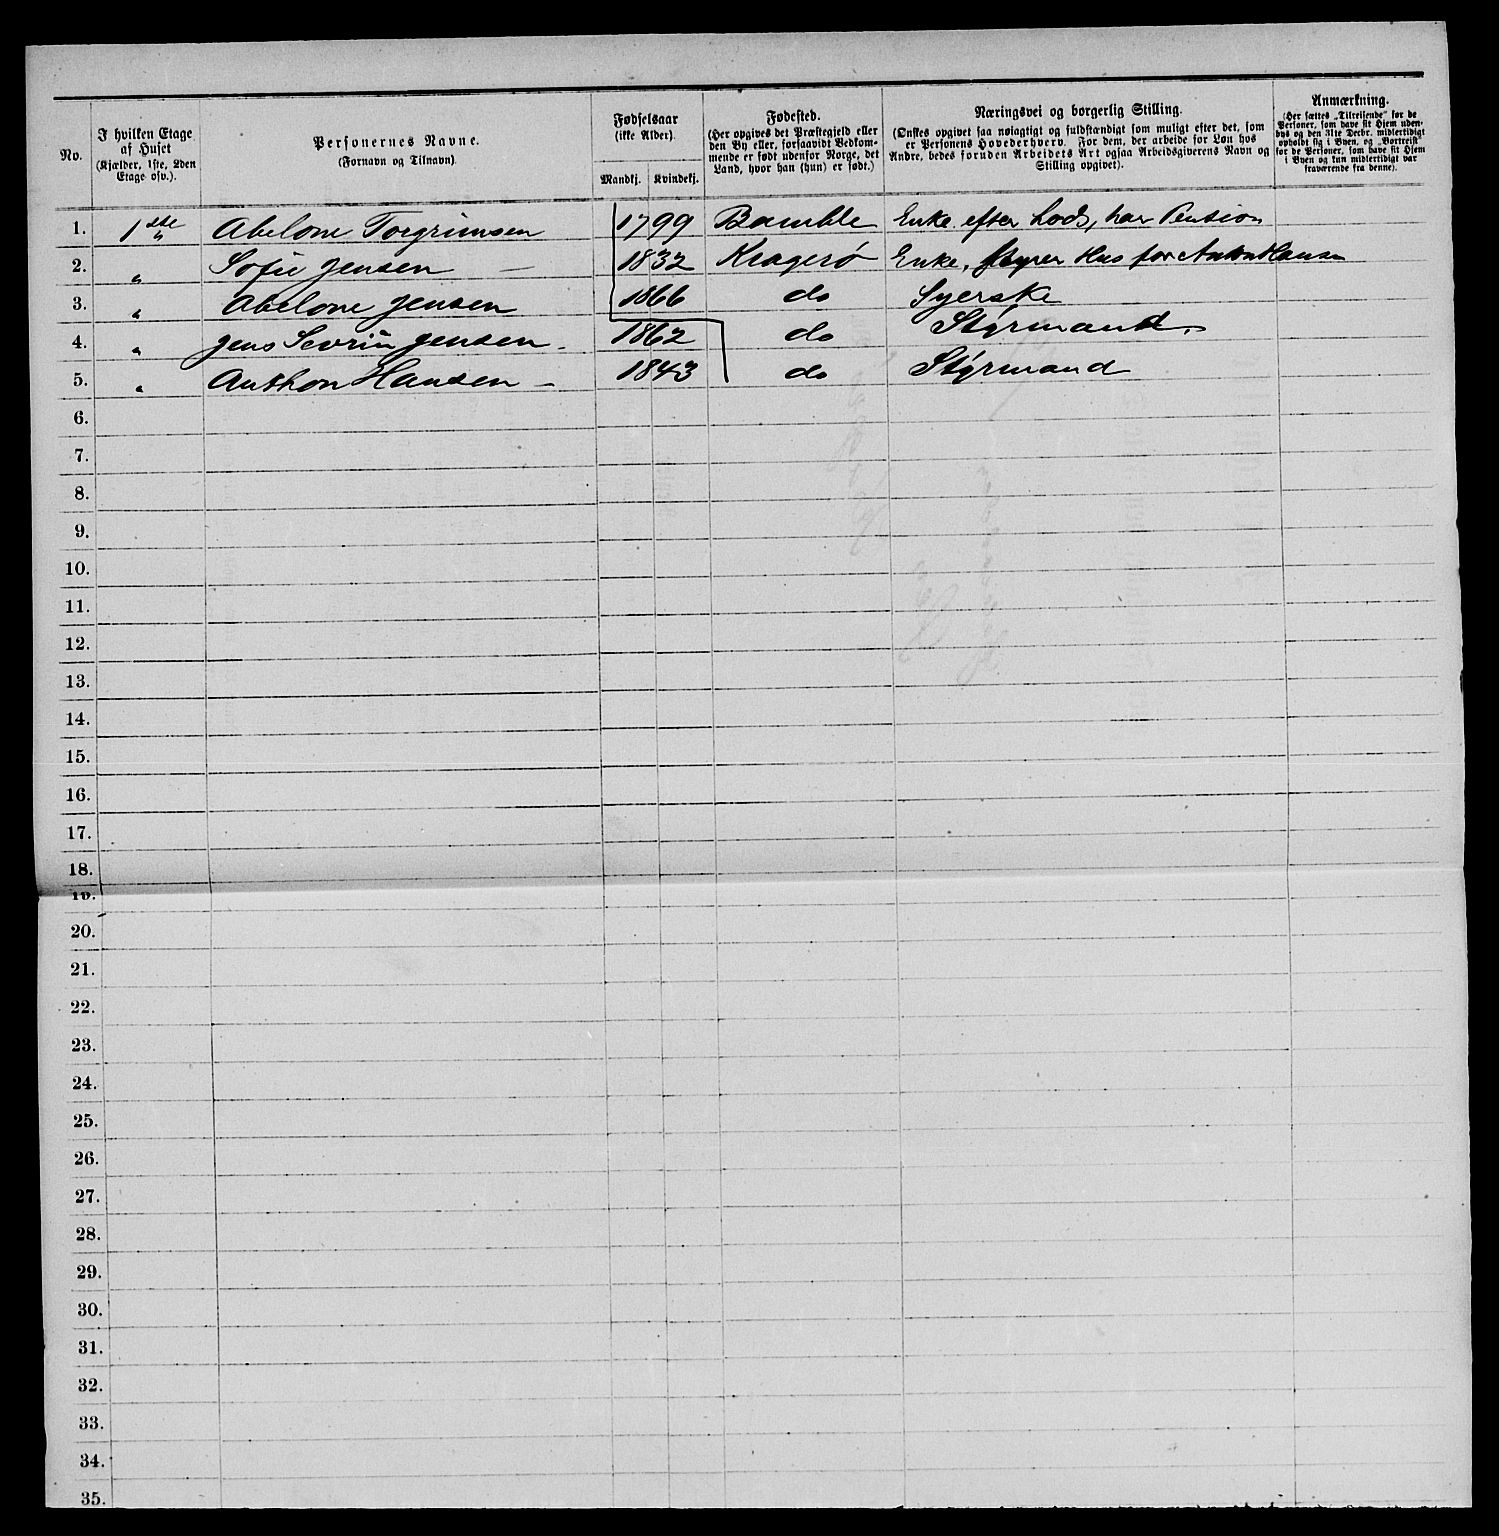 No.
I hvilken Etage af Huset (Kjælder, 1ste, 2den Etage osv.).
Personernes Navne.
(Fornavn og Tilnavn).
Fødselsaar
(ikke Alder).
Mandkj. Kvindekj.
Fødested.
(Her opgives det Præstegjeld eller
den By eller, forsaavidt Vedkom-
mende er født udenfor Norge, det
Land, hvor han (hun) er født.)
Næringsvei og borgerlig Stilling.
(Ønskes opgivet saa nøiagtigt og fuldstændigt som muligt efter det, som
er Personens Hovederhverv. For dem, der arbeide for Løn hos
Andre, bedes foruden Arbeidets Art ogsaa Arbeidsgiverens Navn og
Stilling opgivet).
Anmærkning.
(Her sættes „Tilreisende" for de
Personer, som have sit Hjem uden-
bys og den 31te Decbr. midlertidigt
opholdt sig i Byen, og „Bortreist"
for de Personer, som have sit Hjem
i Byen og kun midlertidigt var
fraværende fra denne).
1. 1ste Abelone Torgrimsen 1799 Bamble Enke efter Lods, har Pension
2. " Sofie Jensen — 1832 Kragerø Enke, styrer Hus for Anton Hansen
3. " Abelone Jensen 1866 do Syerske
4. " Jens Sevrin Jensen - 1862 do Styrmand.
5. " Anthon Hansen - 1843 do Styrmand
6.
7.
8.
9.
10.
11.
12.
13.
14.
15.
16.
17.
18.
19.
20.
21.
22.
23.
24.
25.
26.
27.
28.
29.
30.
31.
32.
33.
34.
35.